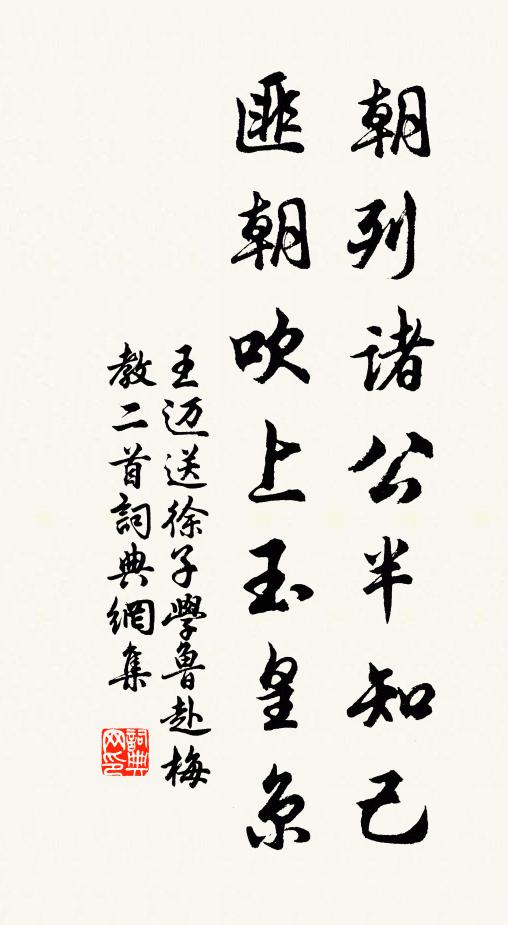 朝列诸公半知己
匪朝吹上玉皇京
王迈送徐子學鲁赴梅
教二首詞典網集
詞典网印